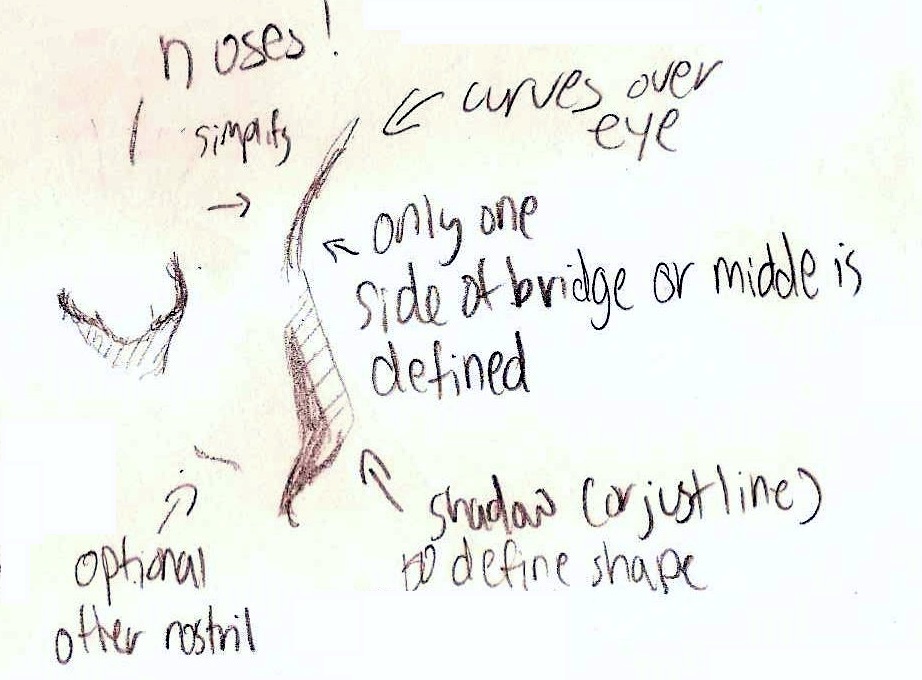 noses!
simplify
curves over
eye
only one
side of bridge or middle is
defined
shadow (or just line)
to define shape
optional
other nostril